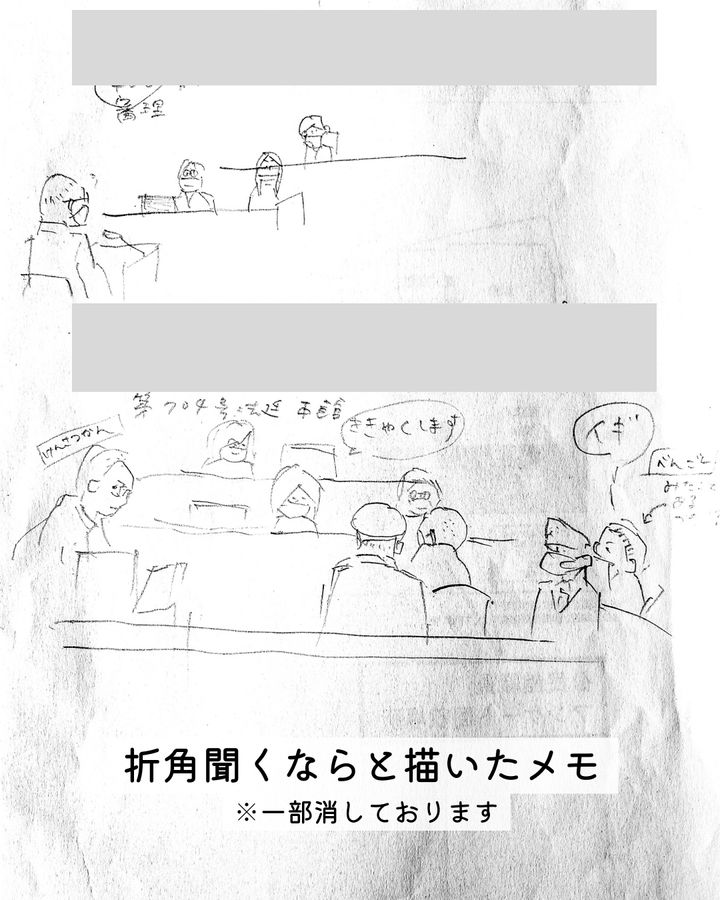 審理
第704号法廷 本館
ききゃくします
イギ
けんさつかん
べんごし
折角聞くならと描いたメモ
※一部消しております